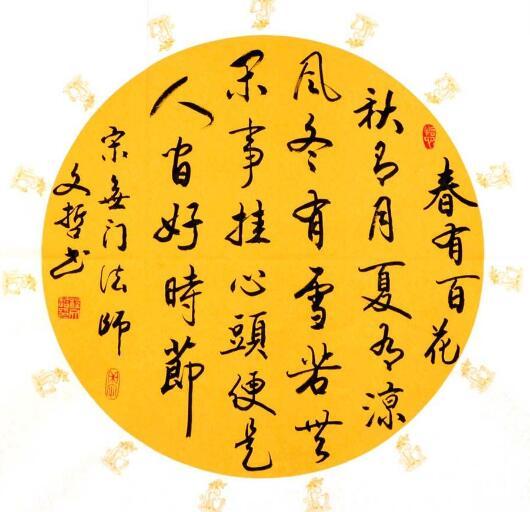 春有百花
秋有月夏有涼
風冬有雪若無
閑事挂心頭便是
人間好時節
宋無门法師
文哲书